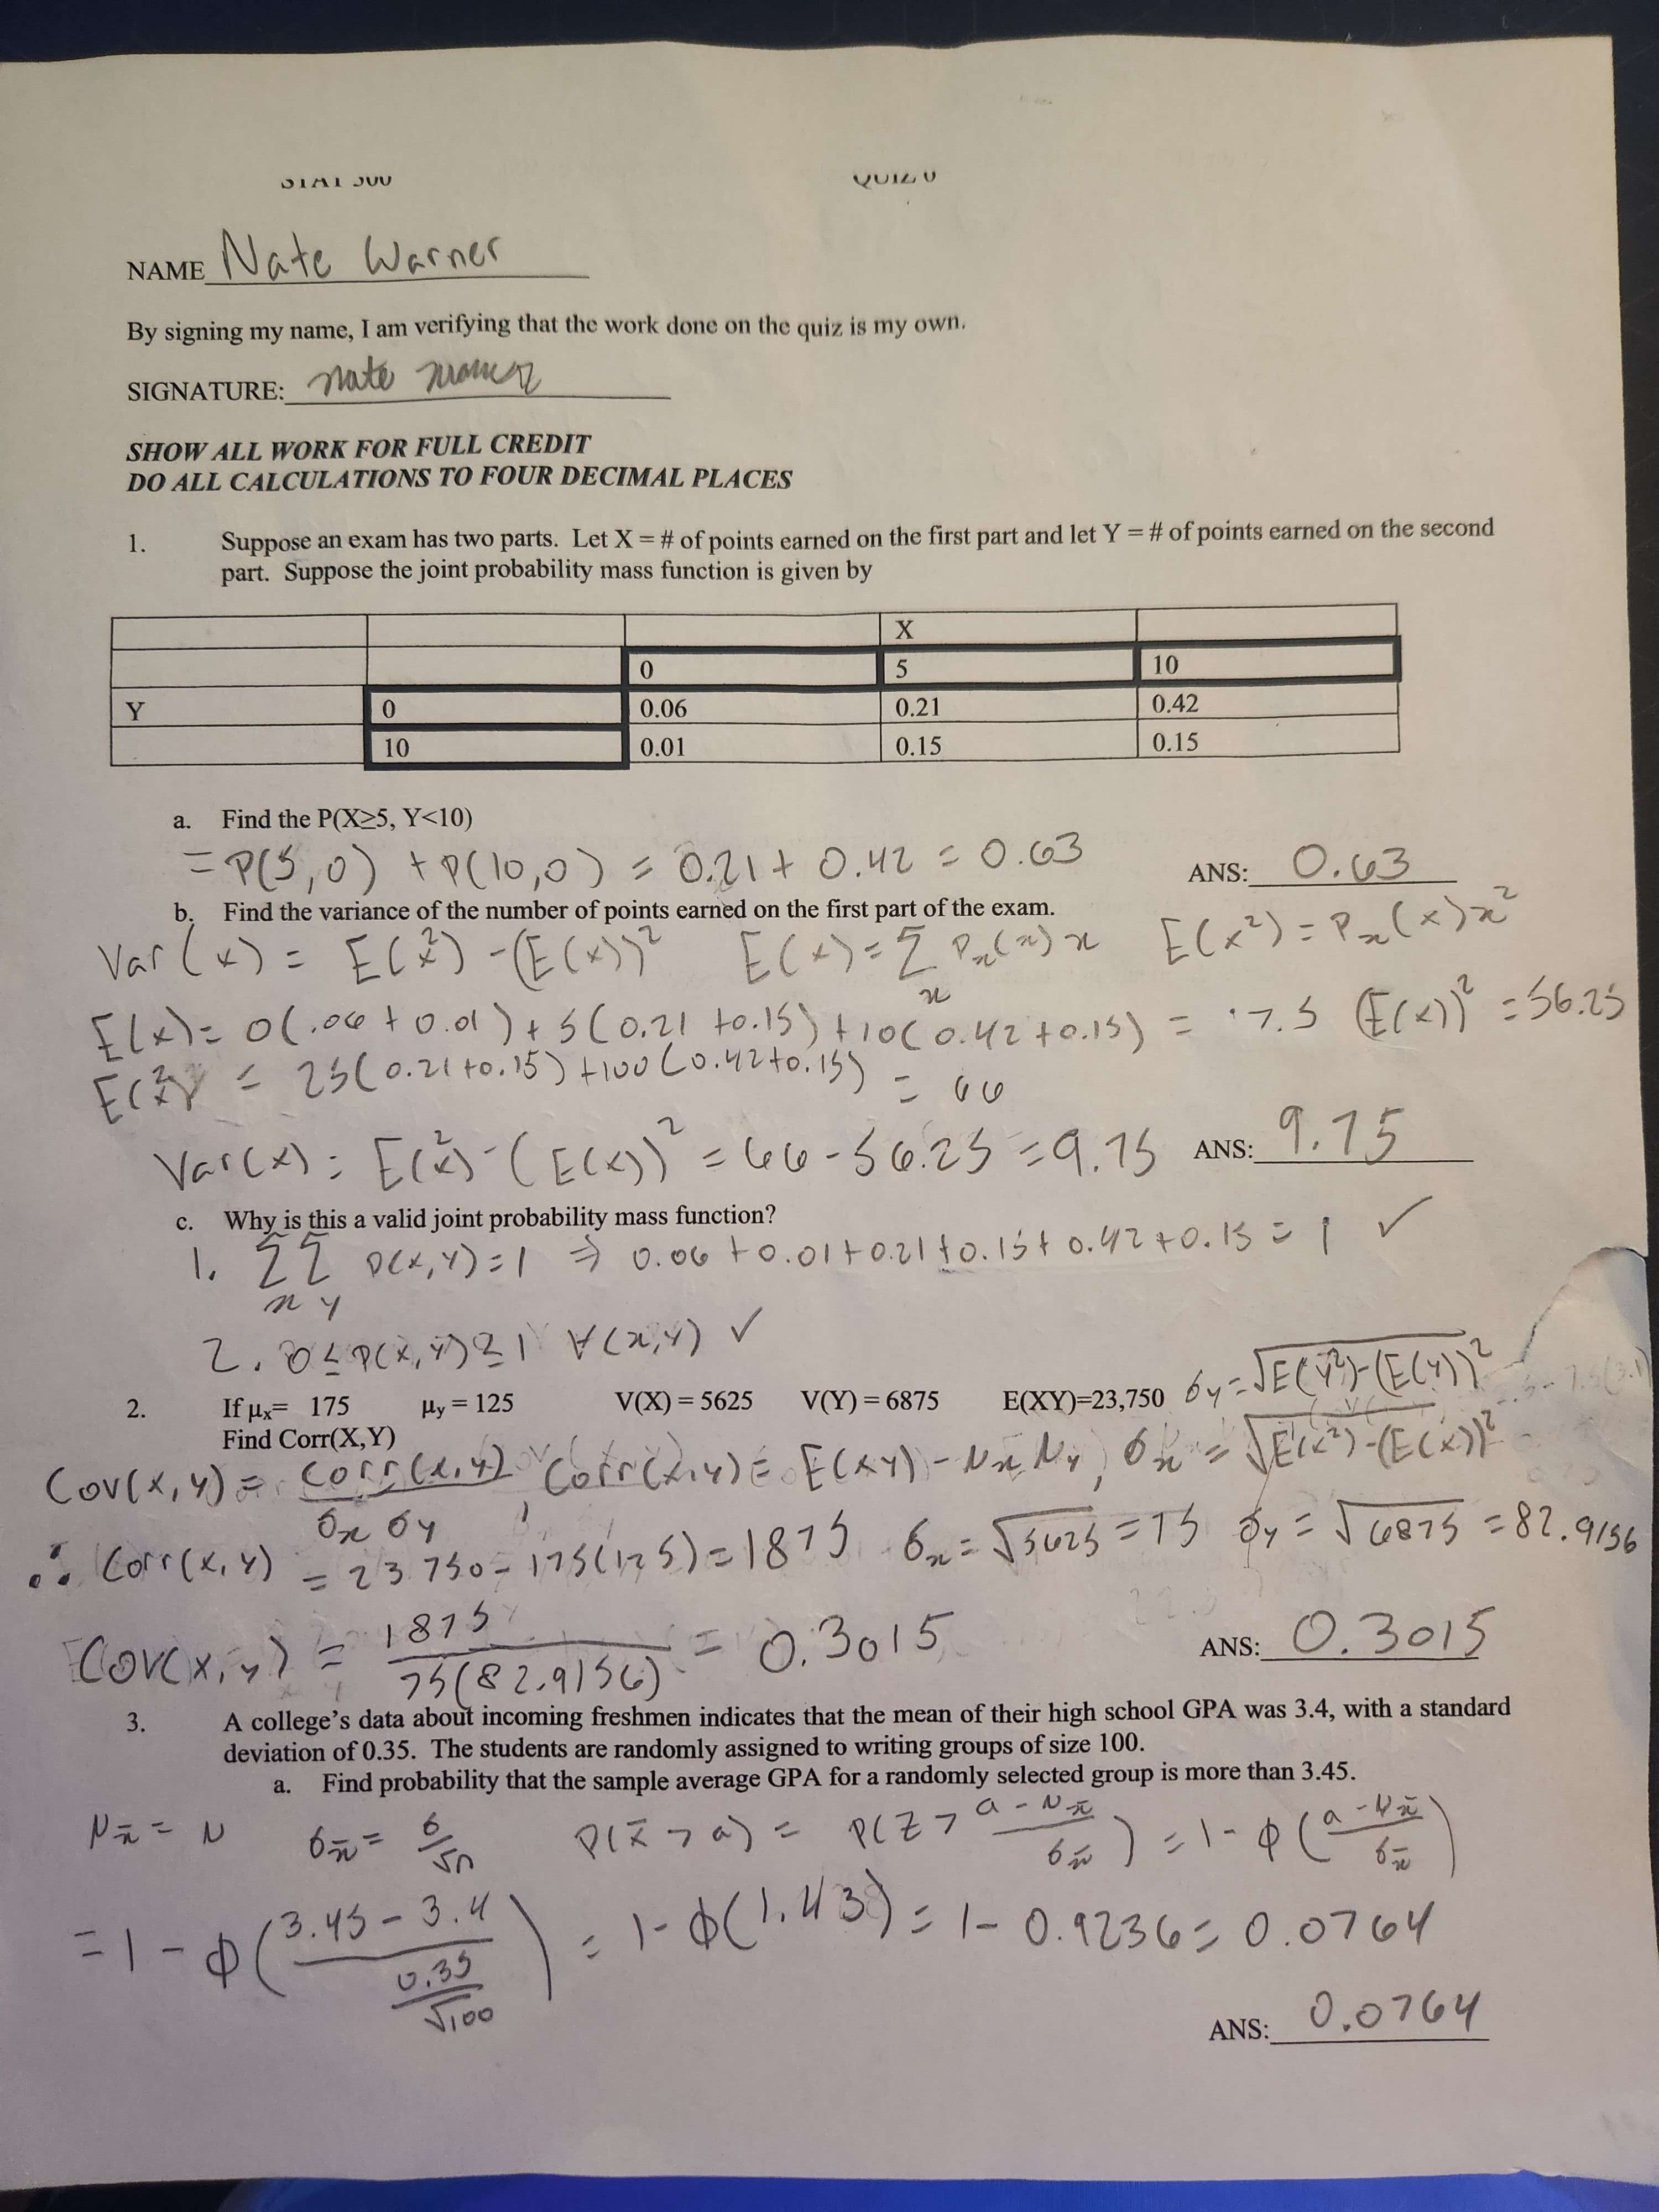 STAT 300 QUIZ 6
NAME Nate Warner
By signing my name, I am verifying that the work done on the quiz is my own.
SIGNATURE: nate warner
SHOW ALL WORK FOR FULL CREDIT
DO ALL CALCULATIONS TO FOUR DECIMAL PLACES
1. Suppose an exam has two parts. Let X = # of points earned on the first part and let Y = # of points earned on the second
part. Suppose the joint probability mass function is given by
X
0 5 10
Y 0 0.06 0.21 0.42
10 0.01 0.15 0.15
a. Find the P(X≥5, Y<10)
= P(5,0) + P(10,0) = 0.21 + 0.42 = 0.63 ANS: 0.63
b. Find the variance of the number of points earned on the first part of the exam.
Var(x) = E(x²) - (E(x))² E(x) = Σ_x P_x(x) x E(x²) = P_x(x) x²
E(x) = 0(.06 + 0.01) + 5(0.21 + 0.15) + 10(0.42 + 0.15) = 7.5 (E(x))² = 56.25
E(x²) = 25(0.21 + 0.15) + 100(0.42 + 0.15) = 66
Var(x) = E(x²) - (E(x))² = 66 - 56.25 = 9.75 ANS: 9.75
c. Why is this a valid joint probability mass function?
1. Σ_x Σ_y P(x,y) = 1 ⇒ 0.06 + 0.01 + 0.21 + 0.15 + 0.42 + 0.15 = 1 ✓
2. 0 ≤ P(x,y) ≤ 1 ∀(x,y) ✓
σ_y = √E(y²) - (E(y))²
2. If μx= 175 μy = 125 V(X) = 5625 V(Y) = 6875 E(XY)=23,750
Find Corr(X,Y)
Cov(x,y) = corr(x,y) / σ_x σ_y , Corr(x,y) = E(xy) - μ_x μ_y , σ_x = √E(x²) - (E(x))²
∴ Corr(x,y) = 23750 - 175(125) = 1875 σ_x = √5625 = 75 σ_y = √6875 = 82.9156
Cov(x,y) = 1875 / 75(82.9156) = 0.3015 ANS: 0.3015
3. A college's data about incoming freshmen indicates that the mean of their high school GPA was 3.4, with a standard
deviation of 0.35. The students are randomly assigned to writing groups of size 100.
a. Find probability that the sample average GPA for a randomly selected group is more than 3.45.
μ_x̄ = μ σ_x̄ = σ/√n P(x̄ > a) = P(Z > (a - μ_x̄)/σ_x̄) = 1 - φ((a - μ_x̄)/σ_x̄)
= 1 - φ((3.45 - 3.4)/(0.35/√100)) = 1 - φ(1.43) = 1 - 0.9236 = 0.0764
ANS: 0.0764